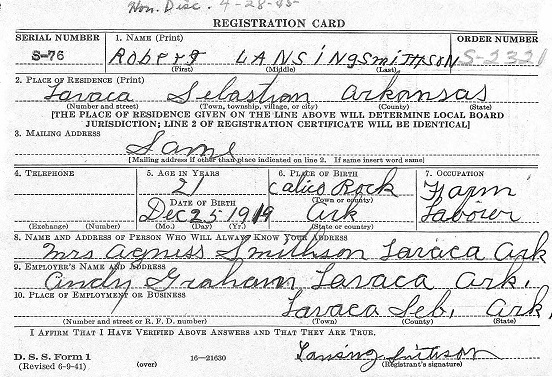 Hon. Disc. 4-28-45
REGISTRATION CARD
SERIAL NUMBER 1. NAME (Print) ORDER NUMBER
S-76 Robert LANSiNg SmiTHSON S-2321
(First) (Middle) (Last)
2. PLACE OF RESIDENCE (Print)
Lavaca Sebastian Arkansas
(Number and street) (Town, township, village, or city) (County) (State)
[THE PLACE OF RESIDENCE GIVEN ON THE LINE ABOVE WILL DETERMINE LOCAL BOARD
JURISDICTION; LINE 2 OF REGISTRATION CERTIFICATE WILL BE IDENTICAL]
3. MAILING ADDRESS
Same
[Mailing address if other than place indicated on line 2. If same insert word same]
4. TELEPHONE 5. AGE IN YEARS 6. PLACE OF BIRTH 7. OCCUPATION
21 Calico Rock Farm
(Town or county)
DATE OF BIRTH
Dec 25 1919 Ark Laborer
(Exchange) (Number) (Mo.) (Day) (Yr.) (State or country)
8. NAME AND ADDRESS OF PERSON WHO WILL ALWAYS KNOW YOUR ADDRESS
Mrs Agness Smithson Lavaca Ark
9. EMPLOYER'S NAME AND ADDRESS
Andy Graham Lavaca Ark.
10. PLACE OF EMPLOYMENT OR BUSINESS
Lavaca Seb. Ark.
(Number and street or R. F. D. number) (Town) (County) (State)
I AFFIRM THAT I HAVE VERIFIED ABOVE ANSWERS AND THAT THEY ARE TRUE.
D. S. S. Form 1
(Revised 6-9-41) (over) 16—21630 Lansing
(Registrant's signature)